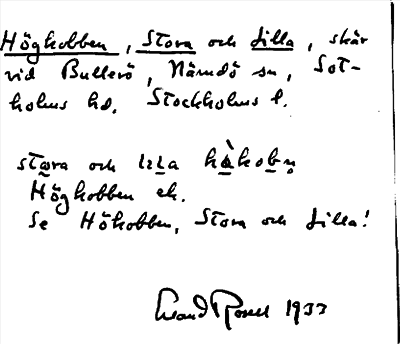 Högkobben, Stora och Lilla, skär
vid Bullerö, Nämdö sn, Sot-
holms hd. Stockholms l.
stora och lilla hàkobn
Högkobben ek.
Se Hökobben, Stora och Lilla!
1933